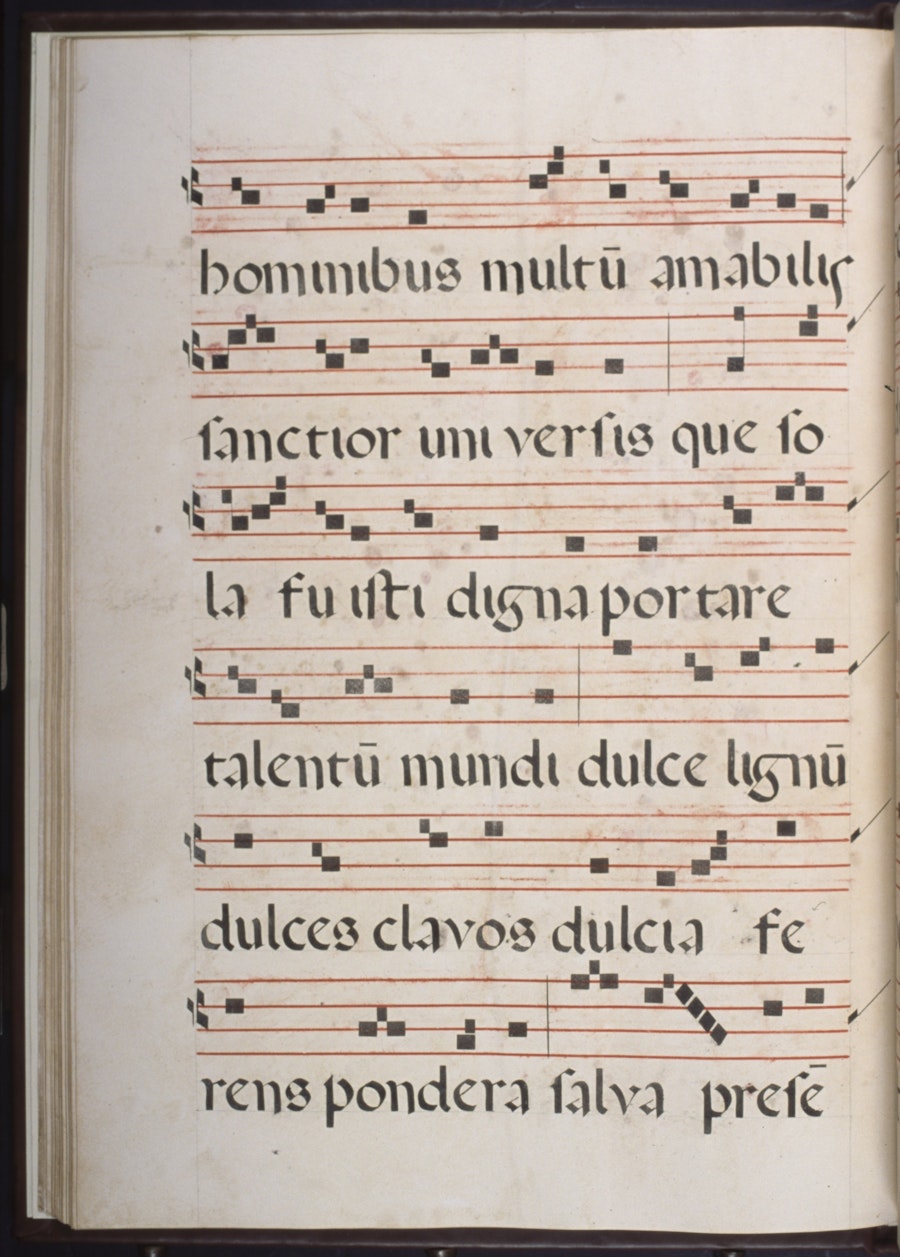 hominibus multū amabilis
ſanctior uni verſis que ſo
la fu iſti digna portare
talentū mundi dulce lignū
dulces clavos dulcia fe
rens pondera ſalva preſē